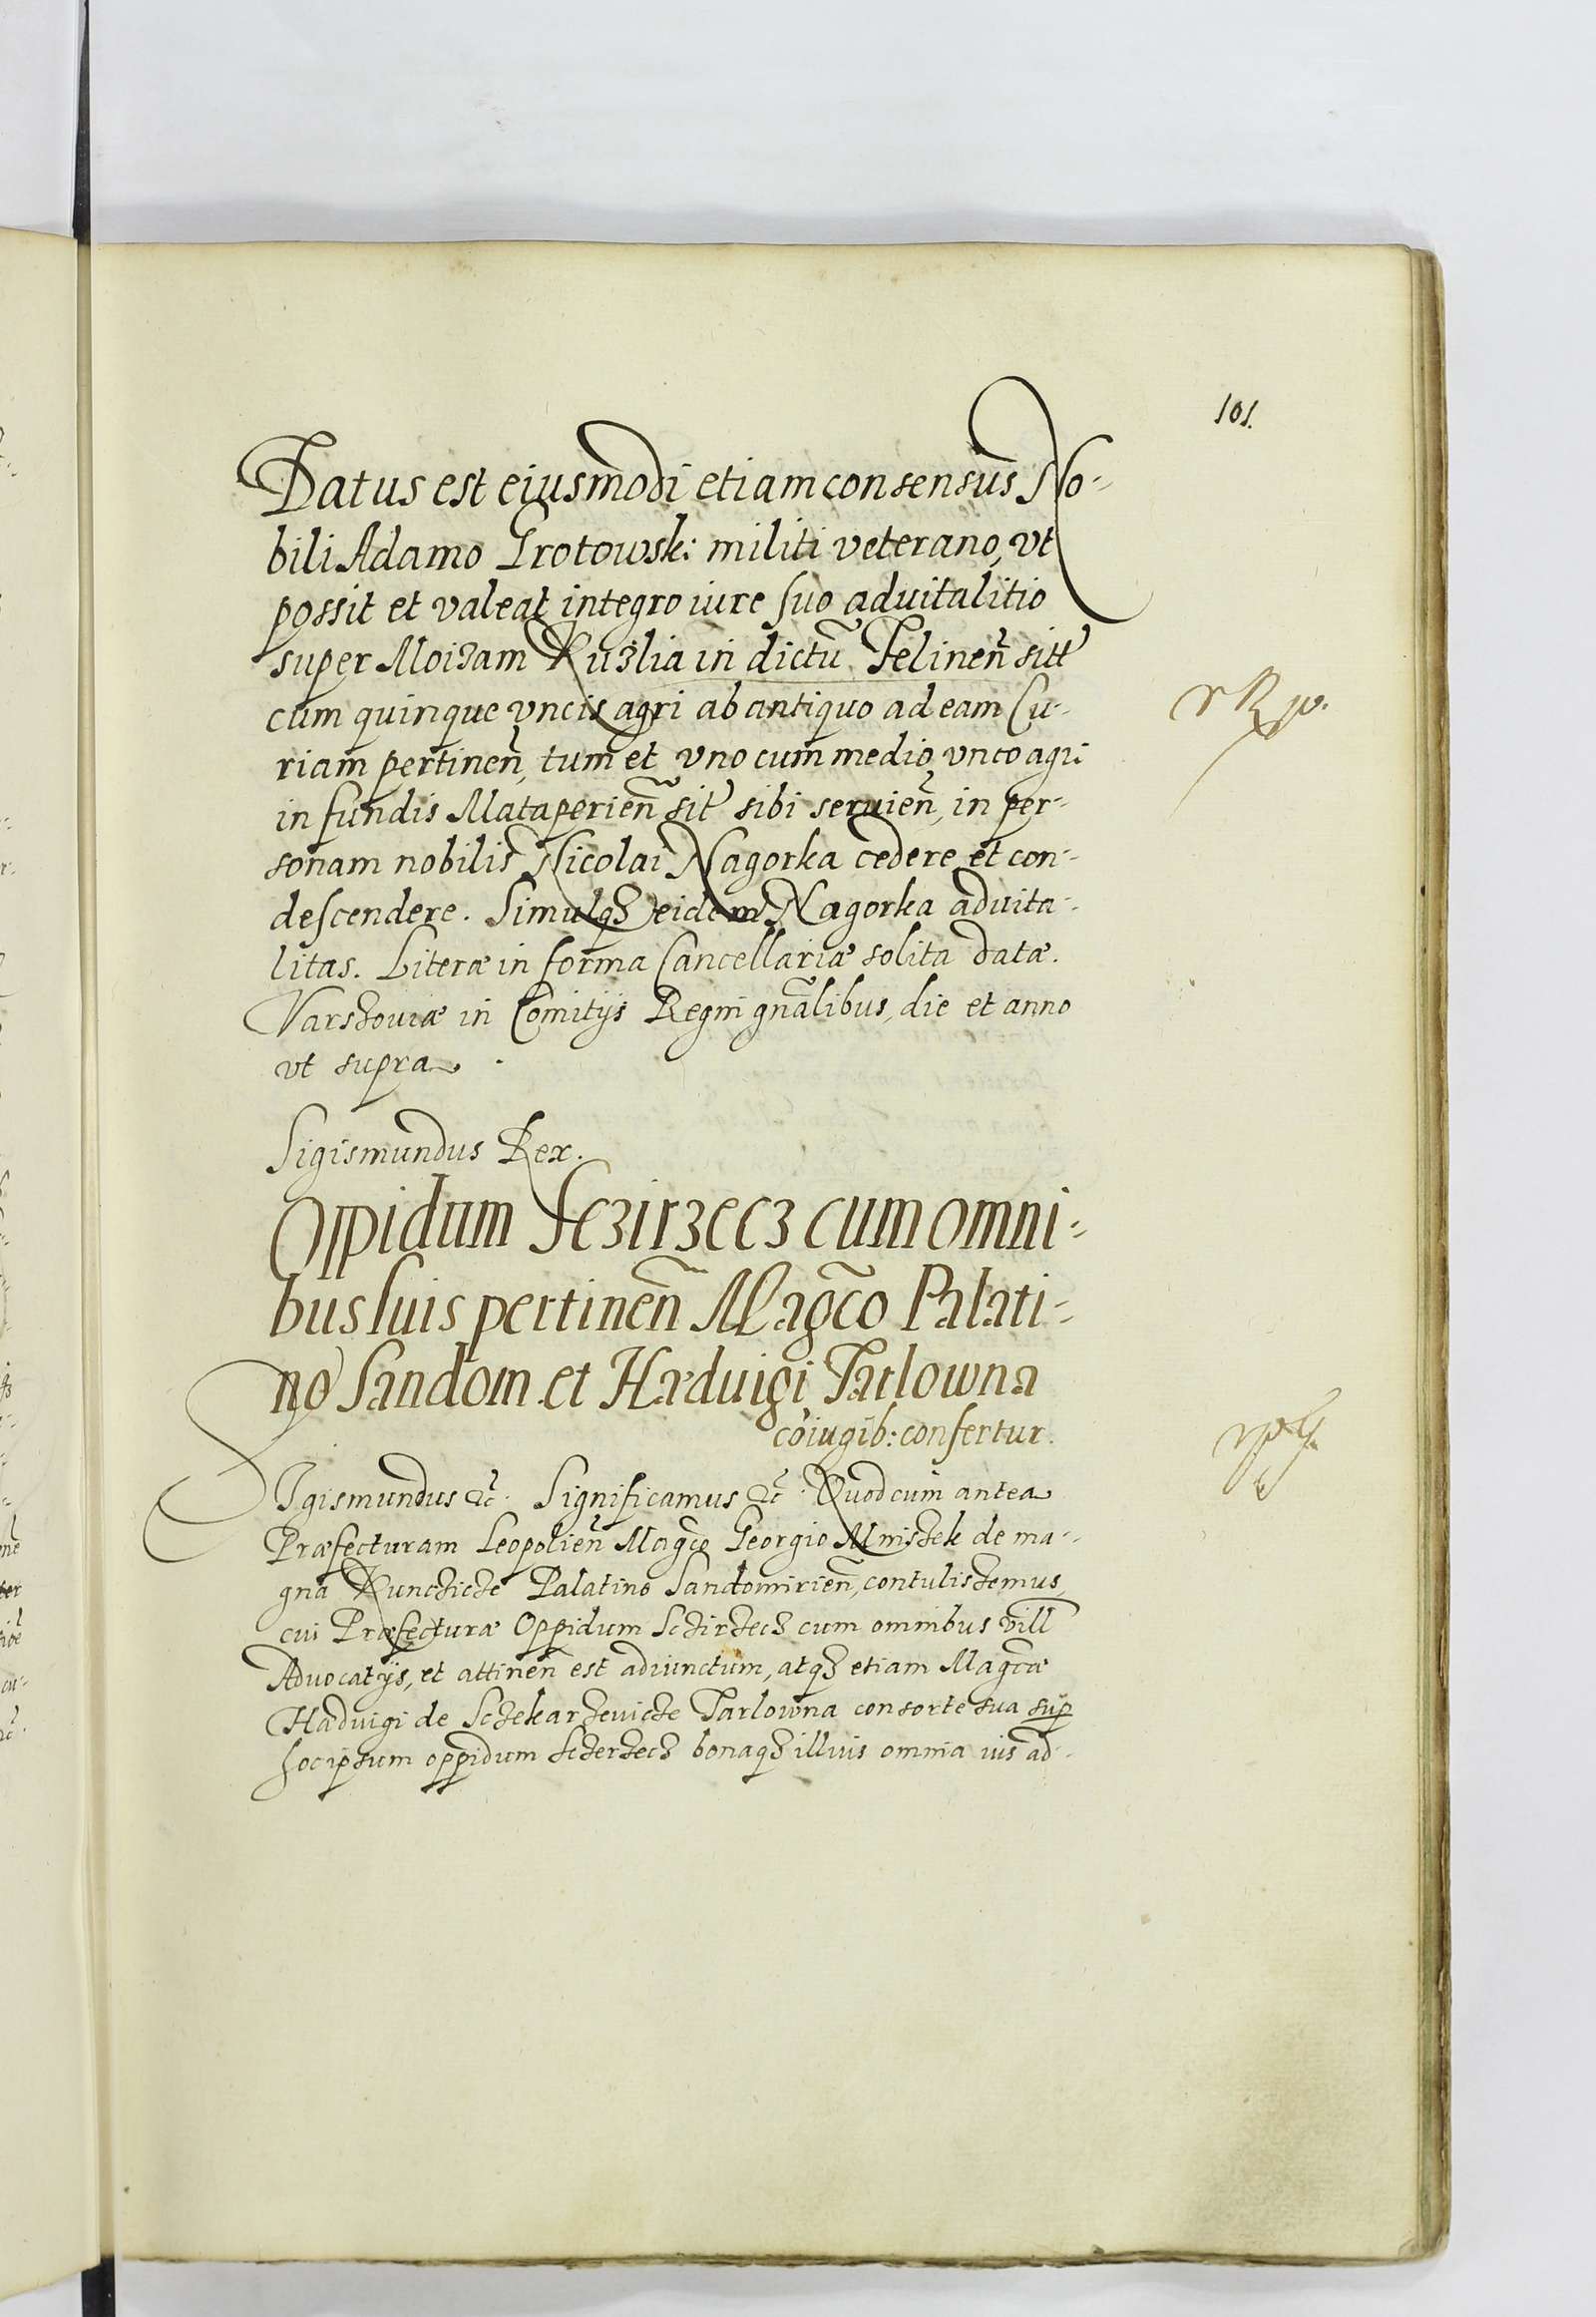 101.
Datus est eiusmodi etiam consensus No-
bili Adamo Grotowsk: militi veterano, vt
possit et valeat integro iure suo aduitalitio
super Moizam Kuzlia in dictũ Felineñ sitt
cum quinque vncis agri ab antiquo ad eam Cu-
riam pertineñ, tum et vno cum medio vnco agri
in fundis Mataperieñ sit sibi seruieñ, in per-
sonam nobilis Nicolai Nagorka cedere et con-
descendere. Simulqȝ eidem Nagorka aduita-
litas. Literæ in forma Cancellariæ solita datæ.
Varszouiæ in Comitijs Regni gñalibus, die et anno
vt supra.
Sigismundus Rex.
Oppidum Sczirzecz cum omni-
bus suis pertineñ Magc̃o Palati-
no Sandom. et Hæduigi Tarlowna
cõiugib: confertur.
SIgismundus &c̃. Significamus &c̃. Quod cum antea
Præfecturam Leopolieñ Magc̃o Georgio Mniszek de ma-
gna Kunczicze Palatino Sandomirieñ, contulissemus,
cui Præfecturæ Oppidum Sczirzecz cum omnibus vill
Aduocatijs, et attineñ est adiunctum, atqȝ etiam Magc̃æ
Hæduigi de Sczekarzevicze Tarlowna consorte sua sup
hocipsum oppidum Sczerzecz bonaqȝ illius omnia ius ad-